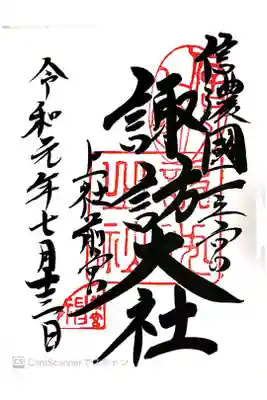 信濃國一之宮
諏訪大社
上社前宮
令和元年七月十三日
CS CamScannerでスキャン